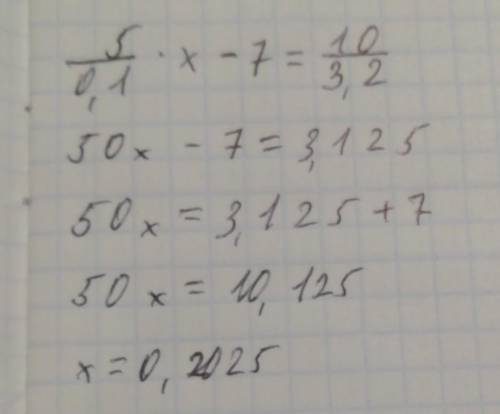 5/0,1 · x - 7 = 10/3,2
50x - 7 = 3,125
50x = 3,125 + 7
50x = 10,125
x = 0,2025